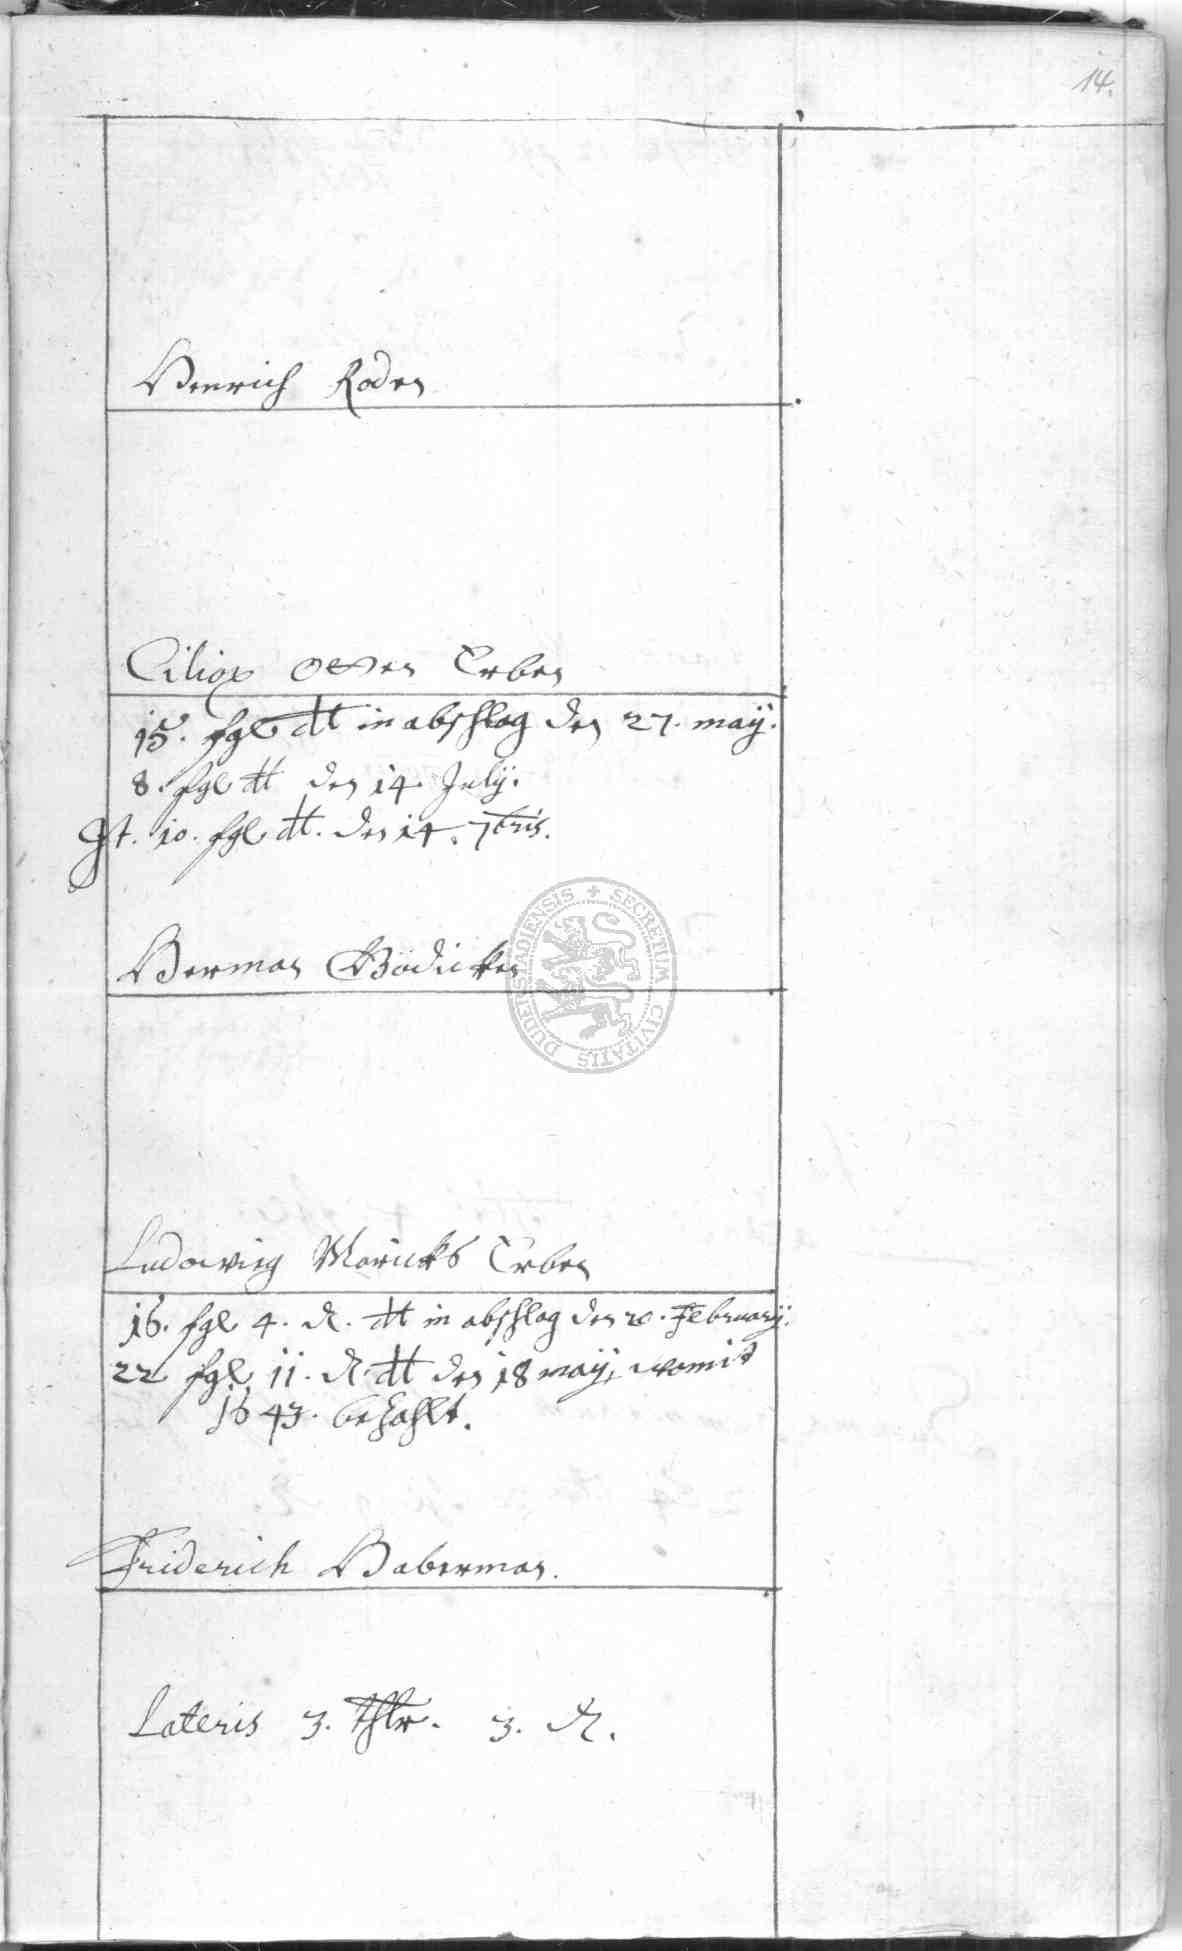 14.
Henrich Roden
Ciliox Otten Erben
15. ßgl dt in abschlag den 27. maÿ.
8. ßgl dt den 14. Julÿ.
It. 10. ßgl dt. den 14. 7bris.
Herman Bödicker
Ludowieg Maricks Erben
16. ßgl 4. d. dt in abschlag den 20. Februarÿ.
22 ßgl 11. d. dt den 18 maÿ, womit
1643. bezahlt.
Friderich Haberman.
Lateris 3. thlr. 3. d.
SECRETUM CIVITATIS DUDERSTADIENSIS